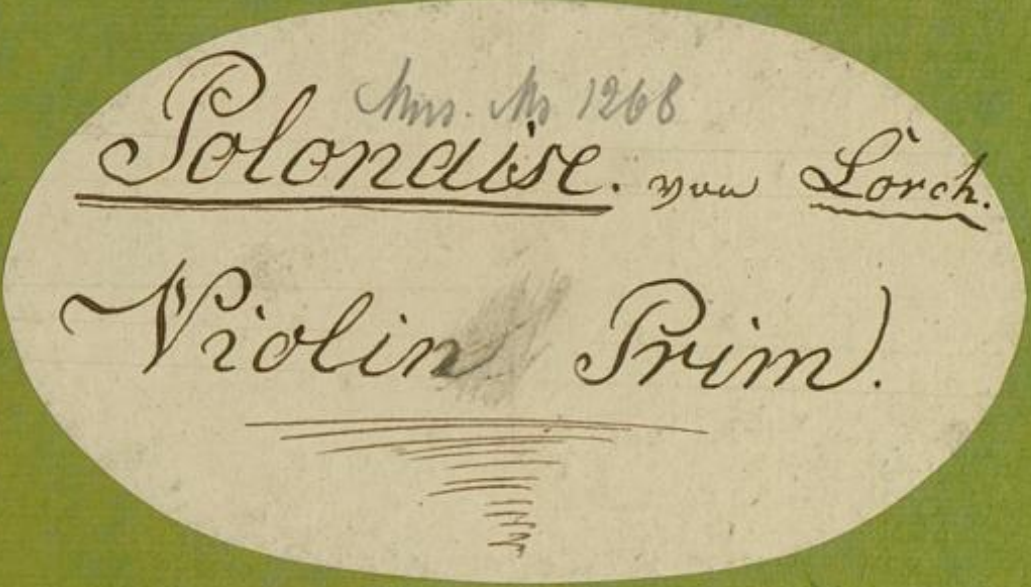 Mus. Ms 1268
Polonaise. von Lorch.
Violin Prim.